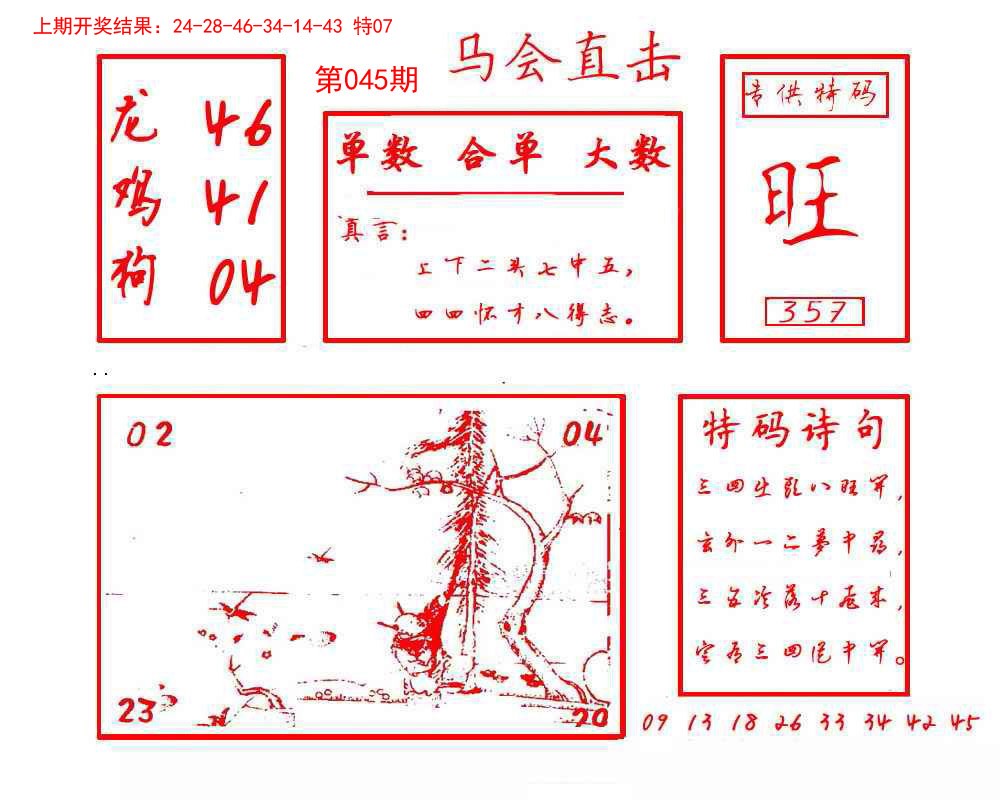 上期开奖结果：24-28-46-34-14-43 特07
马会直击
第045期
龙 46
鸡 41
狗 04
单数 合单 大数
真言：
上下二头七中五，
四四怀才八得志。
供特码
旺
357
02
04
23
20
特码诗句
三四生肖八旺开，
玄外一二梦中寻，
三五冷落十卷来，
定有三四尾中开。
09 13 18 26 33 34 42 45